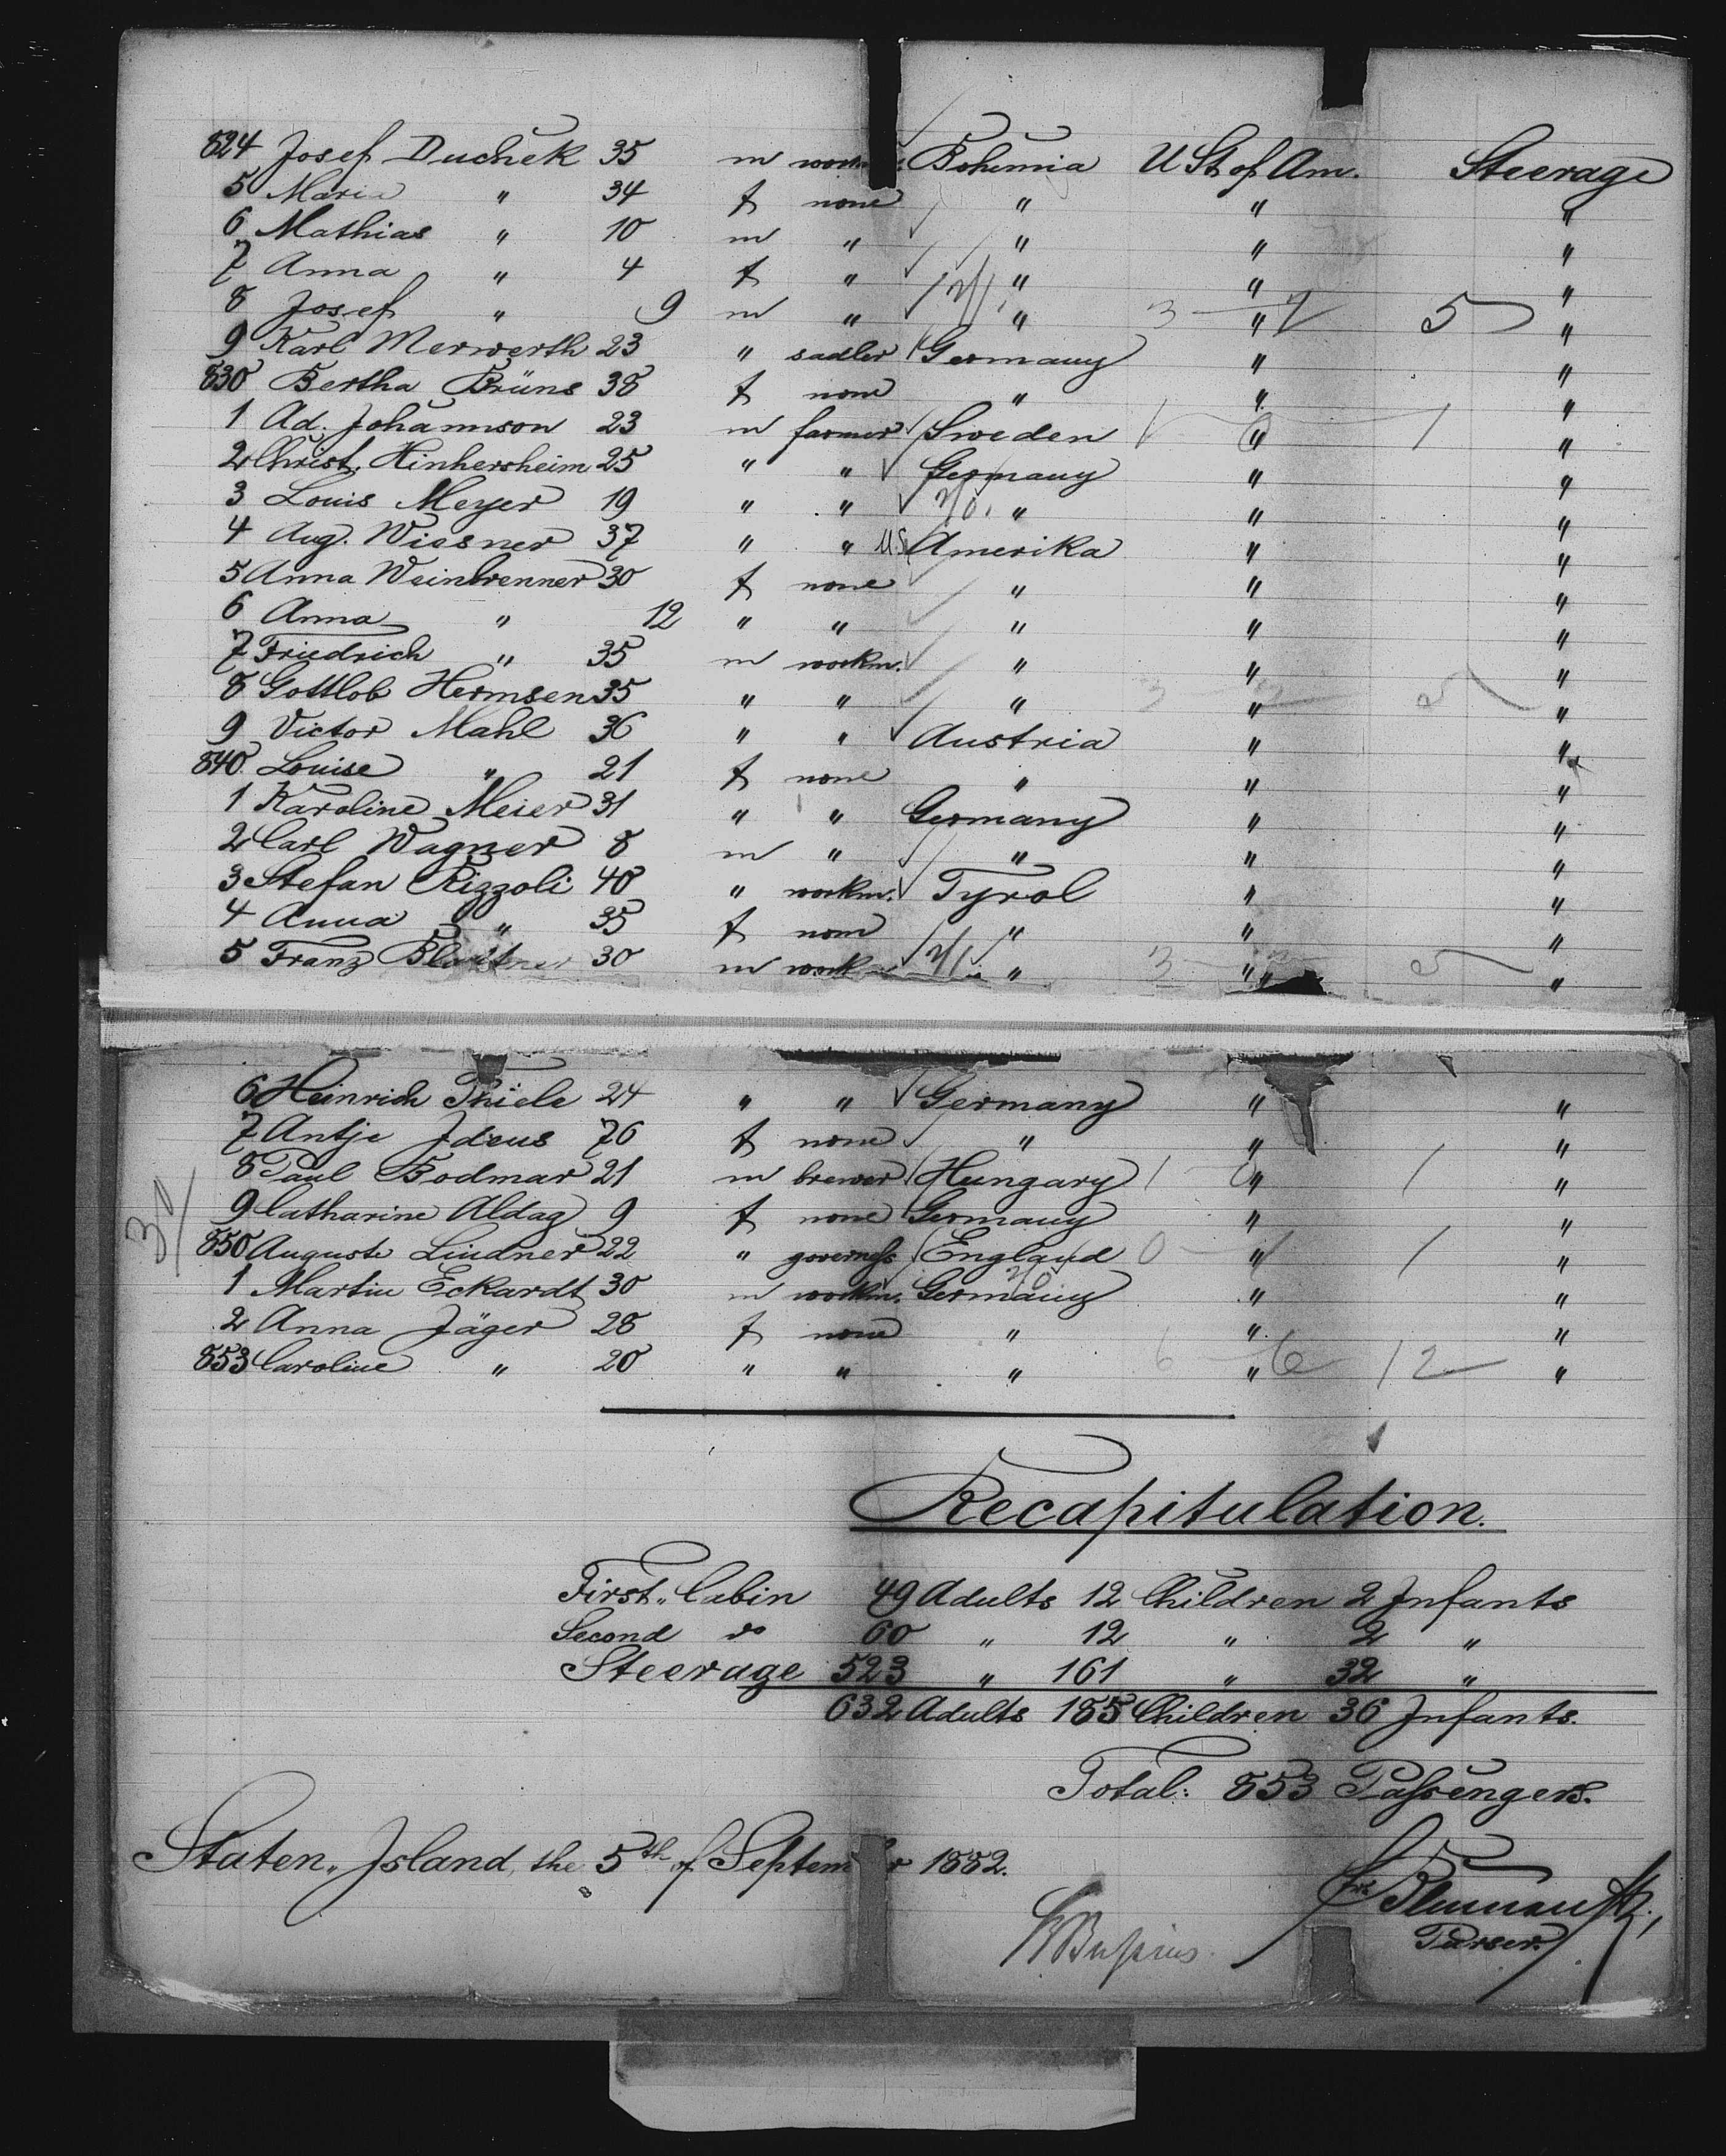 824 Josef Duchek 35 m workm. Bohemia U St of Am. Steerage
5 Maria " 34 f none " " "
6 Mathias " 10 m " " " "
7 Anna " 4 f " " " "
8 Josef " 9 m " " " "
9 Karl Merwerth 23 " sadler Germany " "
830 Bertha Brüns 38 f none " " "
1 Ad. Johannson 23 m farmer Sweden " "
2 Christ. Hinhersheim 25 " " Germany " "
3 Louis Meyer 19 " " " " "
4 Aug. Wiesner 37 " " U.S. Amerika " "
5 Anna Weinbrenner 30 f none " " "
6 Anna " 12 " " " " "
7 Friedrich " 35 m workm. " " "
8 Gottlob Hermsen 35 " " " " "
9 Victor Mahl 36 " " Austria " "
840 Louise " 21 f none " " "
1 Karoline Meier 31 " " Germany " "
2 Carl Wagner 8 m " " " "
3 Stefan Rizzoli 40 " workm. Tyrol " "
4 Anna " 35 f none " " "
5 Franz 30 m work " " "
6 Heinrich Thiele 24 " " Germany " "
7 Antje Ideus 76 f none " " "
8 Paul Bodmar 21 m brewer Hungary " "
9 Catharine Aldag 9 f none Germany " "
850 Auguste Lindner 22 " governess England " "
1 Martin Eckardt 30 m workm. Germany " "
2 Anna Jäger 28 f none " " "
853 Caroline " 20 " " " " "
Recapitulation.
First Cabin 49 Adults 12 Children 2 Infants
Second do 60 " 12 " 2 "
Steerage 523 " 161 " 32 "
632 Adults 185 Children 36 Infants.
Total: 853 Passengers.
Staten Island, the 5th of September 1882.
Purser.